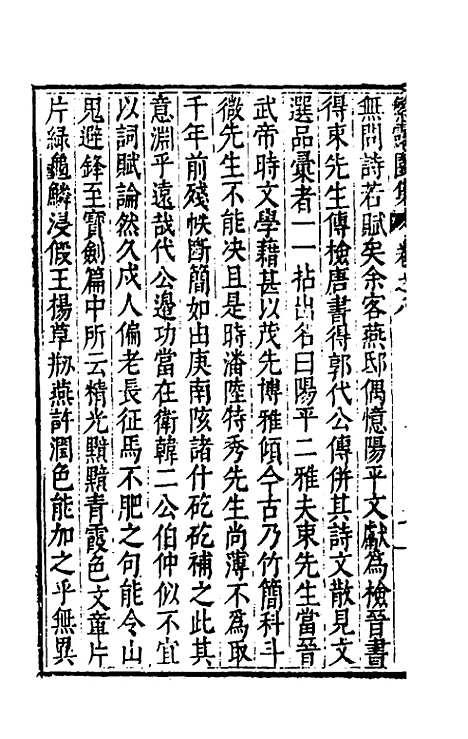 園集卷之八
無問詩若賦矣余客燕邸偶憶陽平文獻為檢晉書
得束先生傳檢唐書得郭代公傳併其詩文散見文
選品彙者一一拈出名曰陽平二雅夫束先生當晉
武帝時文學藉甚以茂先博雅傾今古乃竹簡科斗
微先生不能决且是時潘陸特秀先生尚薄不為取
千年前殘帙斷簡如由庚南陔諸什矻矻補之此其
意淵乎遠哉代公邊功當在衛韓二公伯仲似不宜
以詞賦論然久戍人偏老長征馬不肥之句能令山
鬼避鋒至寶劍篇中所云精光黯黯青霞色文章片
片綠龜鱗浸假王楊草刱燕許潤色能加之乎無異